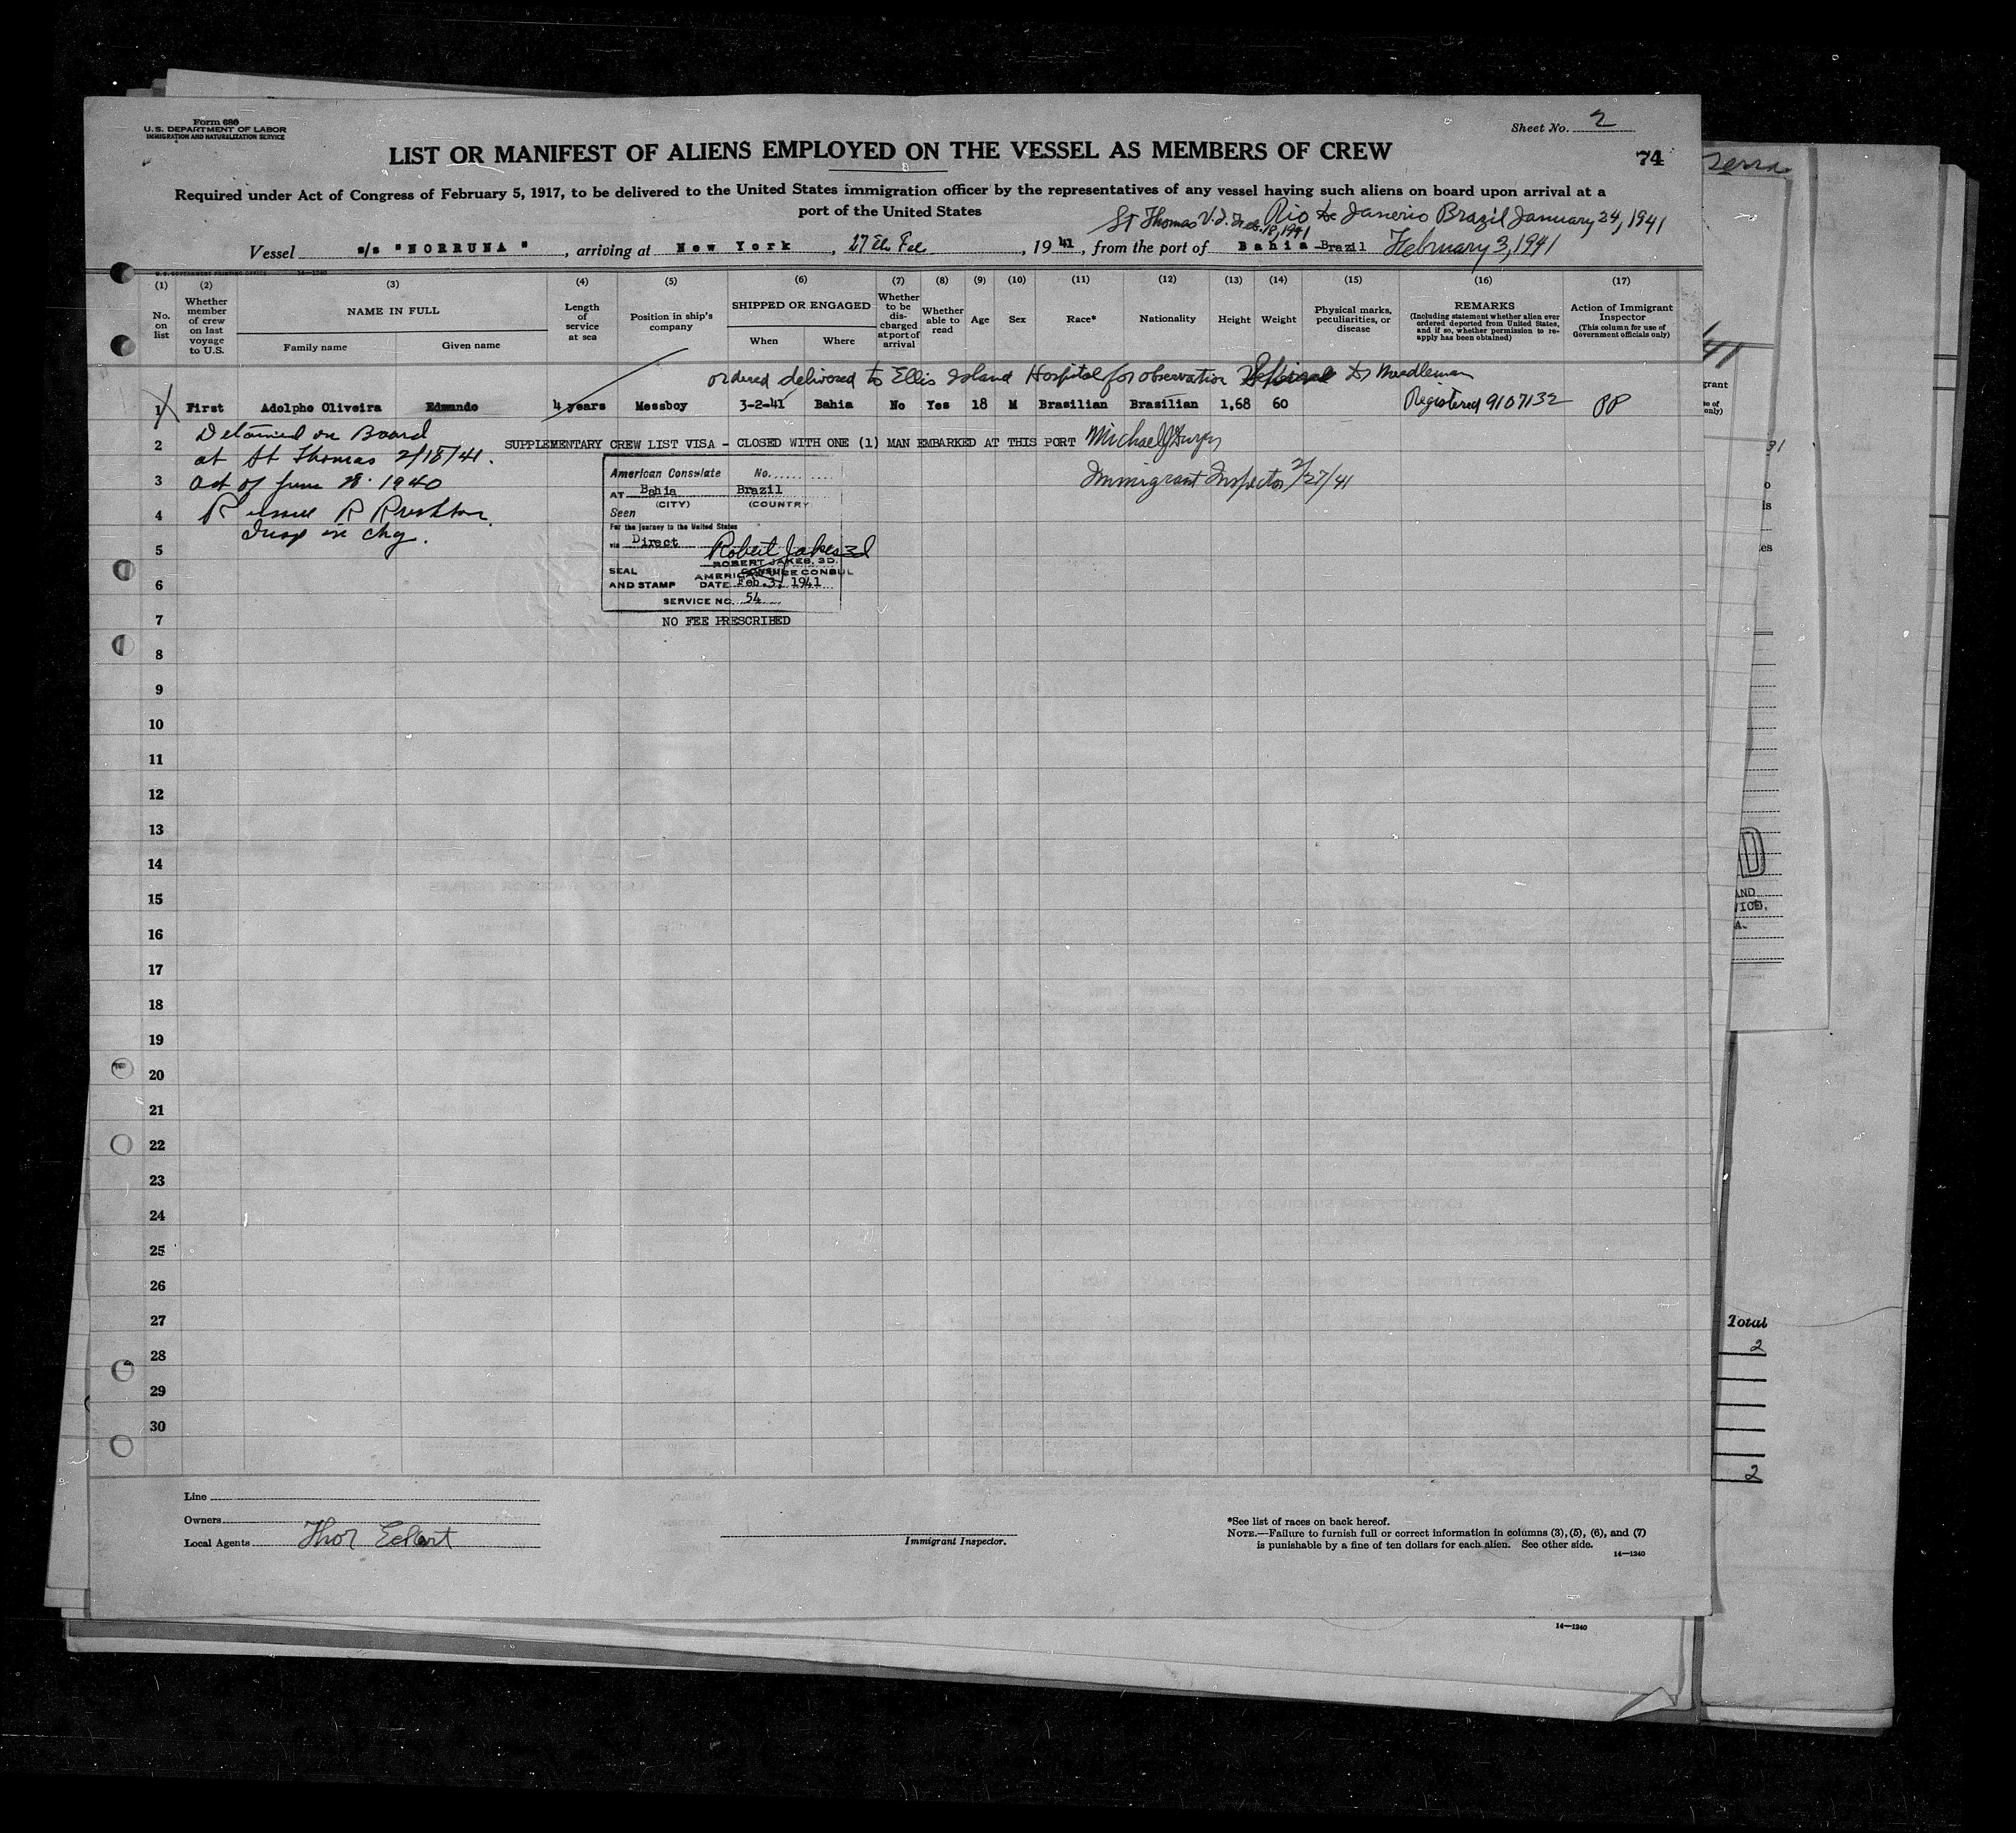 Form 680
U.S. DEPARTMENT OF LABOR
IMMIGRATION AND NATURALIZATION SERVICE
Sheet No. 2
74
LIST OR MANIFEST OF ALIENS EMPLOYED ON THE VESSEL AS MEMBERS OF CREW
Required under Act of Congress of February 5, 1917, to be delivered to the United States immigration officer by the representatives of any vessel having such aliens on board upon arrival at a
port of the United States
St Thomas V.I. Feb. 18, 1941 Rio de Janerio Brazil January 24, 1941
Vessel s/s "NORRUNA", arriving at New York, 27th Feb, 1941, from the port of Bahia-Brazil February 3, 1941
U.S. GOVERNMENT PRINTING OFFICE 14—1240
(1) (2) (3) (4) (5) (6) (7) (8) (9) (10) (11) (12) (13) (14) (15) (16) (17)
No. on list
Whether member of crew on last voyage to U.S.
NAME IN FULL
Family name Given name
Length of service at sea
Position in ship's company
SHIPPED OR ENGAGED
When Where
Whether to be discharged at port of arrival
Whether able to read
Age
Sex
Race*
Nationality
Height
Weight
Physical marks, peculiarities, or disease
REMARKS
(Including statement whether alien ever ordered deported from United States, and if so, whether permission to reapply has been obtained)
Action of Immigrant Inspector
(This column for use of Government officials only)
ordered delivered to Ellis Island Hospital for observation Dr Needleman
1 First Adolpho Oliveira Edmundo 4 years Messboy 3-2-41 Bahia No Yes 18 M Brasilian Brasilian 1,68 60 Registered 9107132 PP
Detained on Board
2 SUPPLEMENTARY CREW LIST VISA - CLOSED WITH ONE (1) MAN EMBARKED AT THIS PORT Michael J
at St Thomas 2/18/41.
Immigrant Inspector 2/27/41
3
Act of June 28. 1940
4
Russell R Rushton
Insp in chg.
American Consulate No.
AT Bahia Brazil
(CITY) (COUNTRY
Seen
For the journey to the United States
via Direct
Robert Jakes 3d
ROBERT JAKES, 3D.
SEAL AMERICAN VICE CONSUL
AND STAMP DATE Feb. 3, 1941
SERVICE NO. 54
NO FEE PRESCRIBED
5
6
7
8
9
10
11
12
13
14
15
16
17
18
19
20
21
22
23
24
25
26
27
28
29
30
Line
Owners
Local Agents Thor Eckert
Immigrant Inspector.
*See list of races on back hereof.
NOTE.—Failure to furnish full or correct information in columns (3), (5), (6), and (7)
is punishable by a fine of ten dollars for each alien. See other side.
14—1240
14—1240
Total
2
2